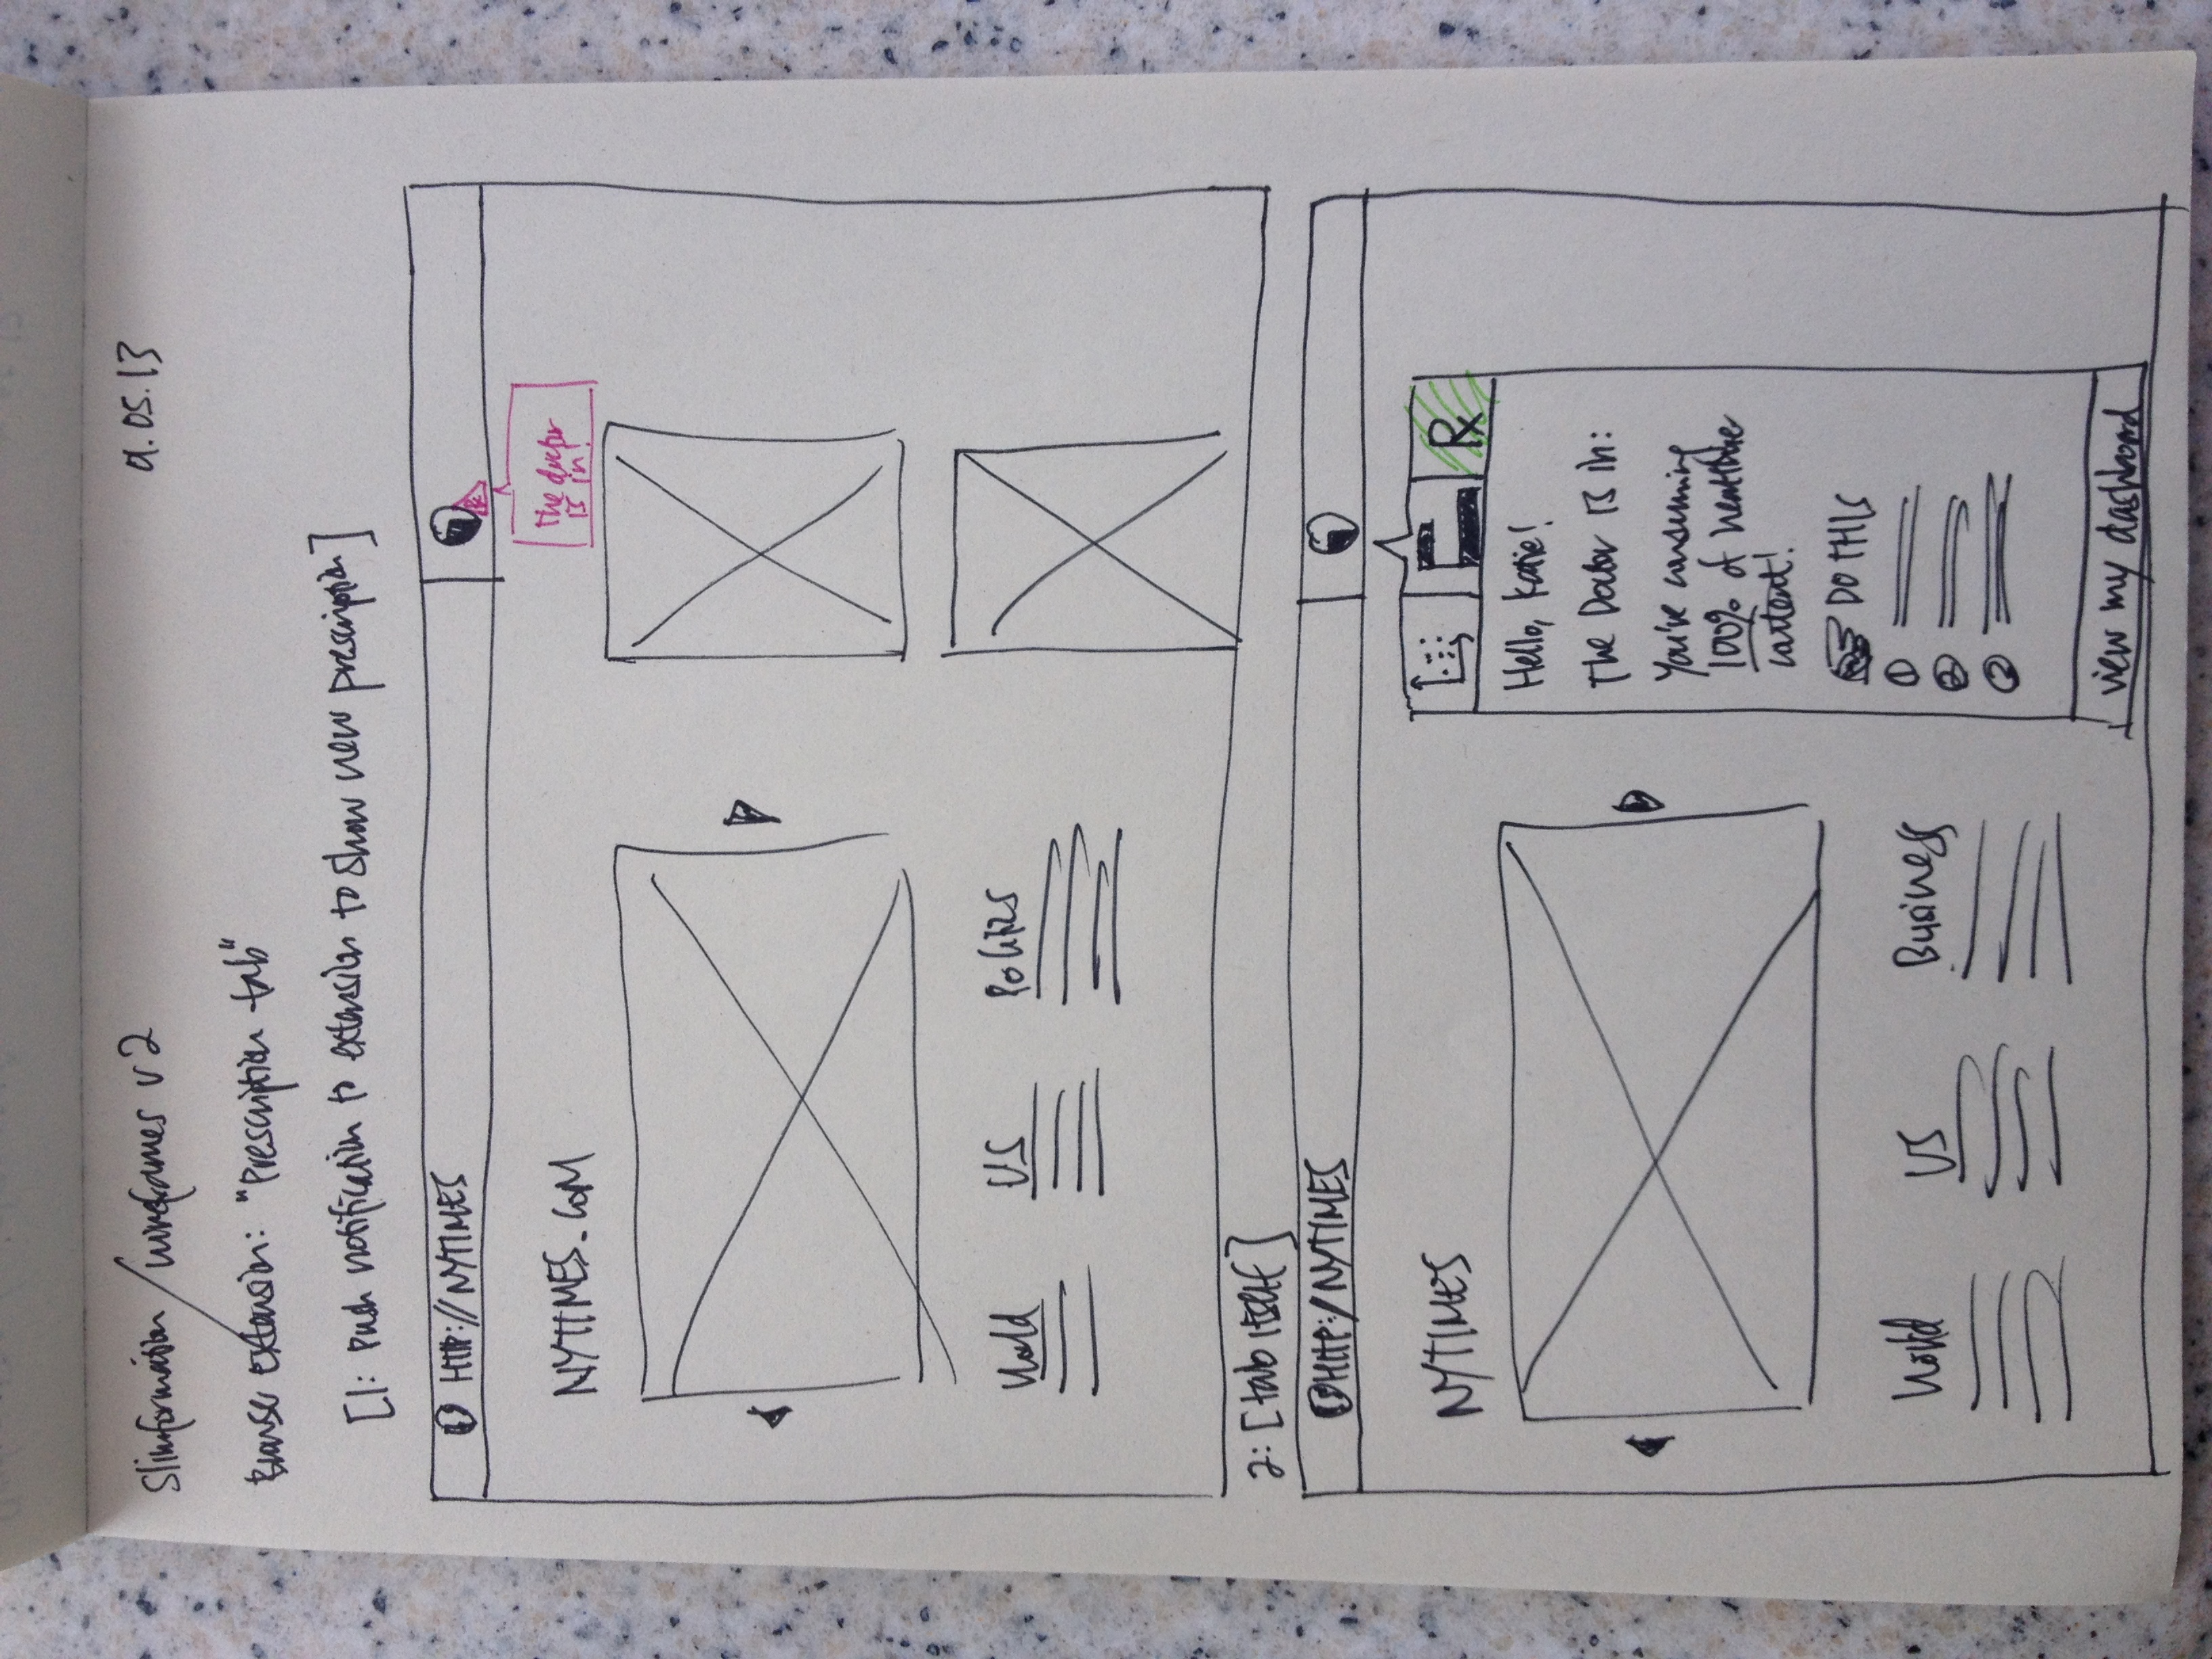 Slimformation / wireframes v2
9.05.13
Browser extension: "Prescription tab"
[1: Push notification to extension to show new prescription]
HTTP://NYTIMES
The doctor
is in!
NYTIMES.COM
World
US
Politics
2: [tab itself]
HTTP://NYTIMES
NYTIMES
Rx
Hello, Katie!
The Doctor is in:
You're consuming
100% of healthcare
content!
DO THIS
1
2
3
World
US
Business
view my dashboard